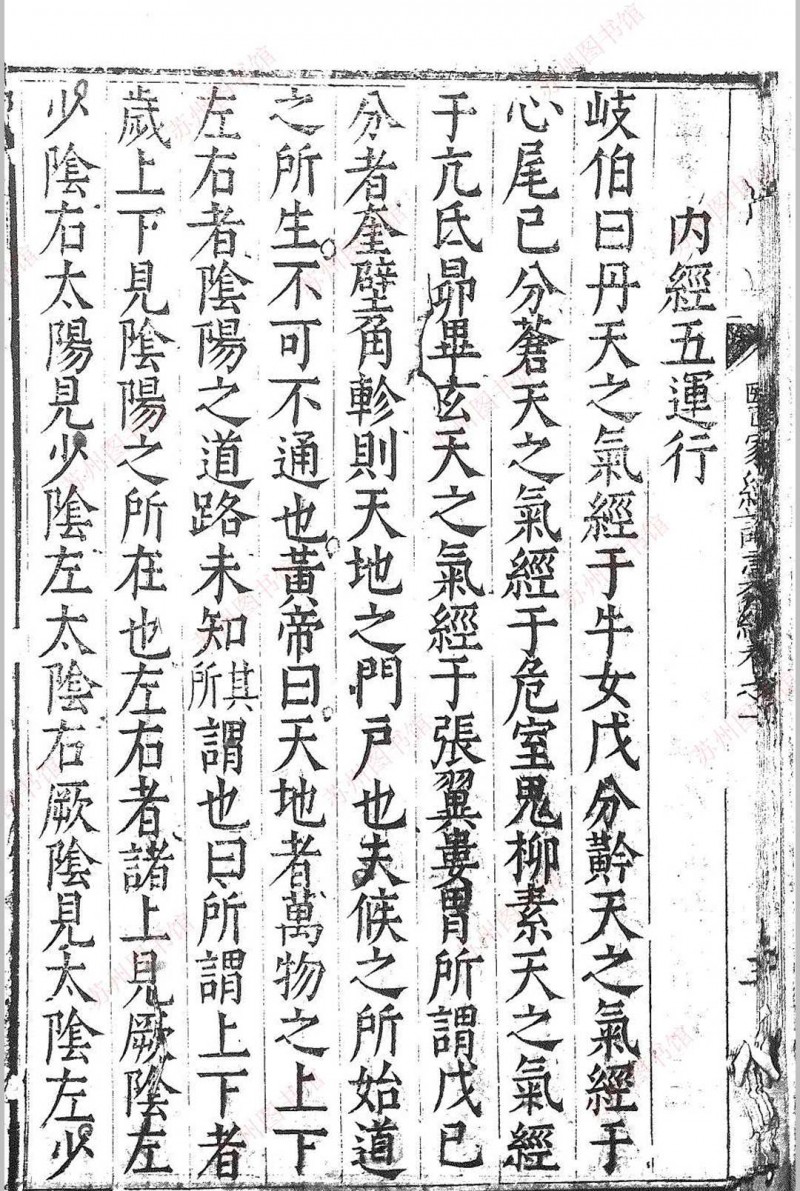 內經五運行
岐伯曰丹天之氣經于牛女戊分黅天之氣經于
心尾己分蒼天之氣經于危室鬼柳素天之氣經
于亢氐昴畢玄天之氣經于張翼婁胃所謂戊己
分者奎壁角軫則天地之門戶也夫候之所始道
之所生不可不通也黃帝曰天地者萬物之上下
左右者陰陽之道路未知其所謂也曰所謂上下者
歲上下見陰陽之所在也左右者諸上見厥陰左
少陰右太陽見少陰左太陰右厥陰見太陰左少
苏州图书馆